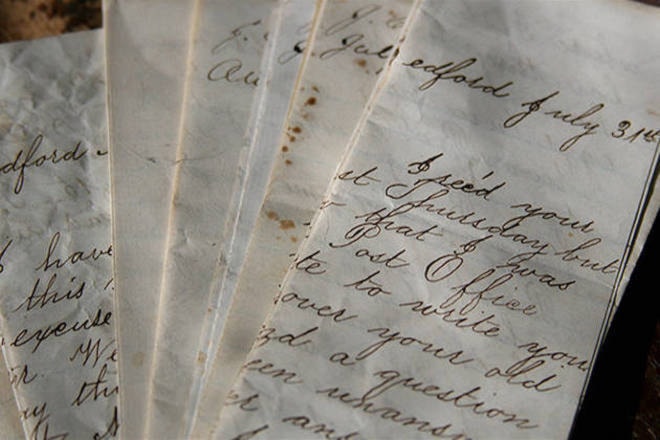 dford
I have
this
excuse
We
J.
Au
J.
Jul
edford July 31st
I rec'd your
st Thursday but
that I was
Post Office
te to write you
over your old
d a question
een unansw